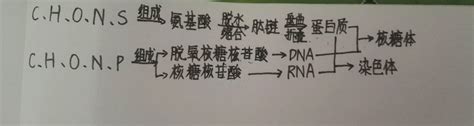 C.H.O.N.S 组成 氨基酸 脱水缩合 肽链 盘曲折叠 蛋白质 核糖体
C.H.O.N.P 组成 脱氧核糖核苷酸 → DNA 染色体
核糖核苷酸 → RNA